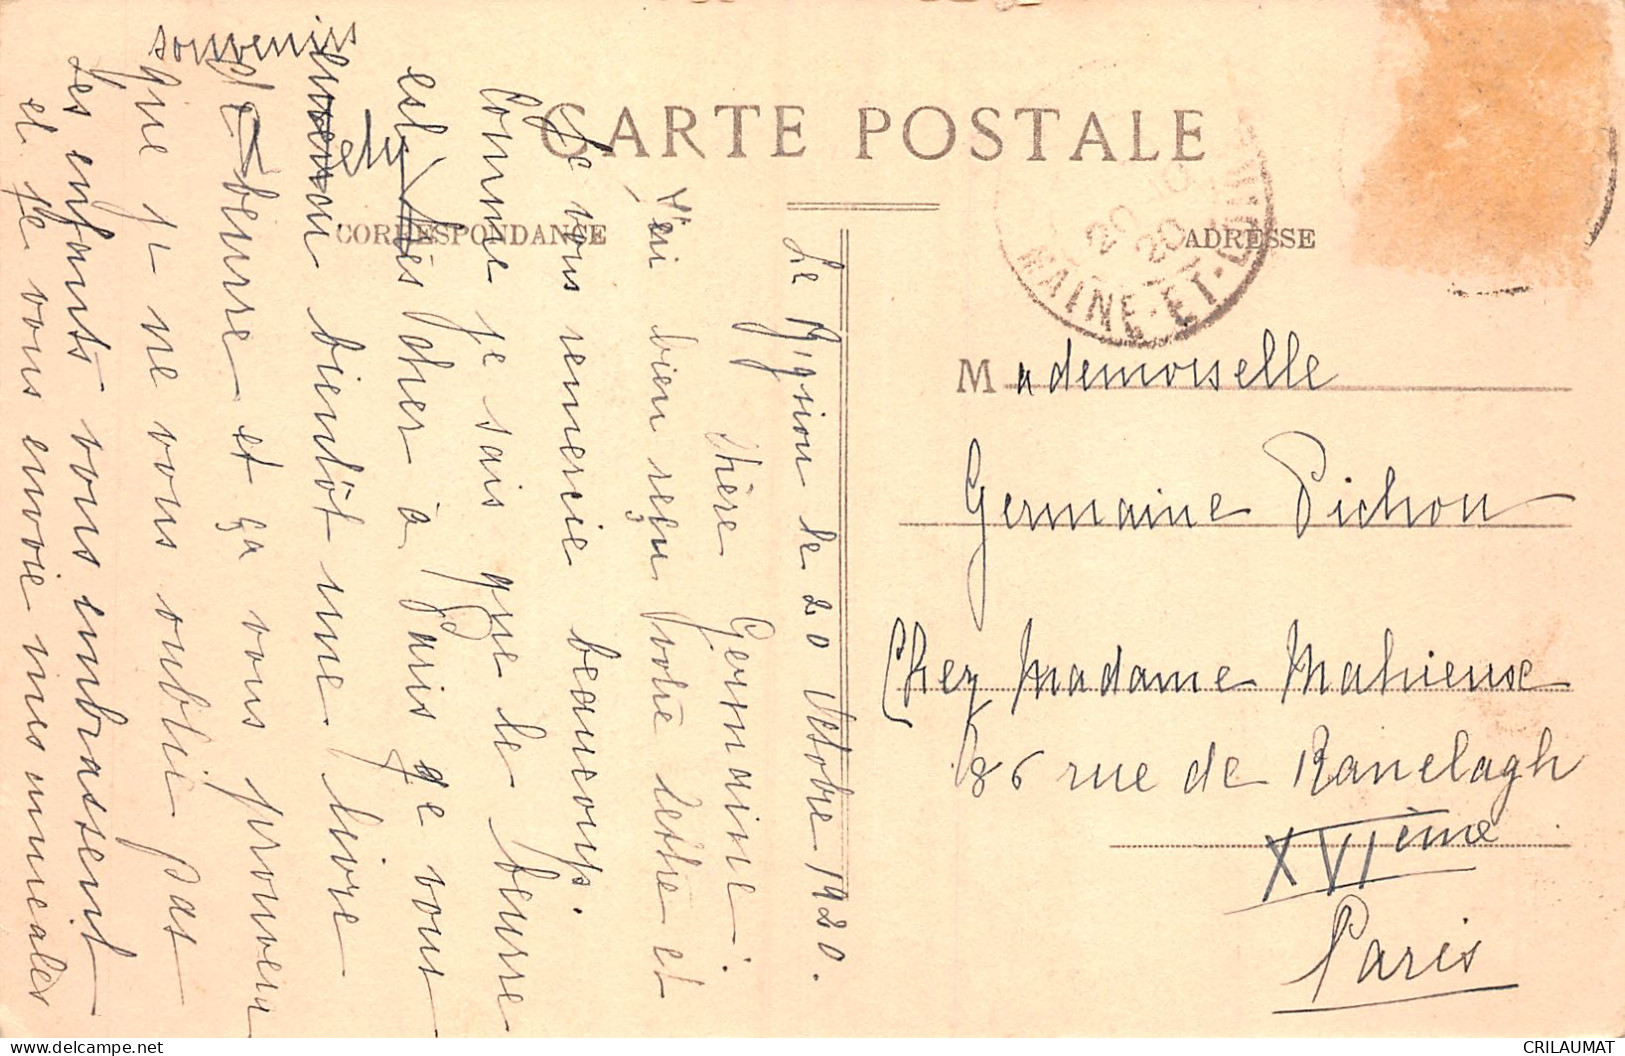 CARTE POSTALE
CORRESPONDANCE
ADRESSE
MAINE-ET-LOIRE
20
20
Le 20 Octobre 1920.
Chère Germaine.
J'ai bien reçu votre lettre et
Je vous remercie beaucoup.
Comme je sais que le beurre
est très cher à Paris je vous
bientôt une livre
de beurre et ça vous prouvera
que je ne vous oublie pas
Les enfants vous embrassent
et je vous envoie mes
souvenirs
Mademoiselle
Germaine Pichon
Chez Madame Mahieuse
86 rue de Ranelagh
XVIème
Paris
CRILAUMAT